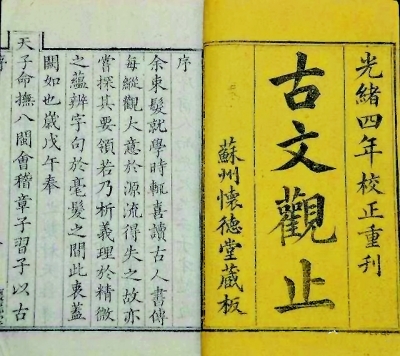 光緒四年校正重刊
古文觀止
蘇州懷德堂藏板
序
余束髮就學時輒喜讀古人書傳
每縱觀大意於源流得失之故亦
嘗探其要領若乃析義理於精微
之蘊辨字句於毫髮之間此衷蓋
闕如也歲戊午奉
天子命撫八閩會稽章子習子以古